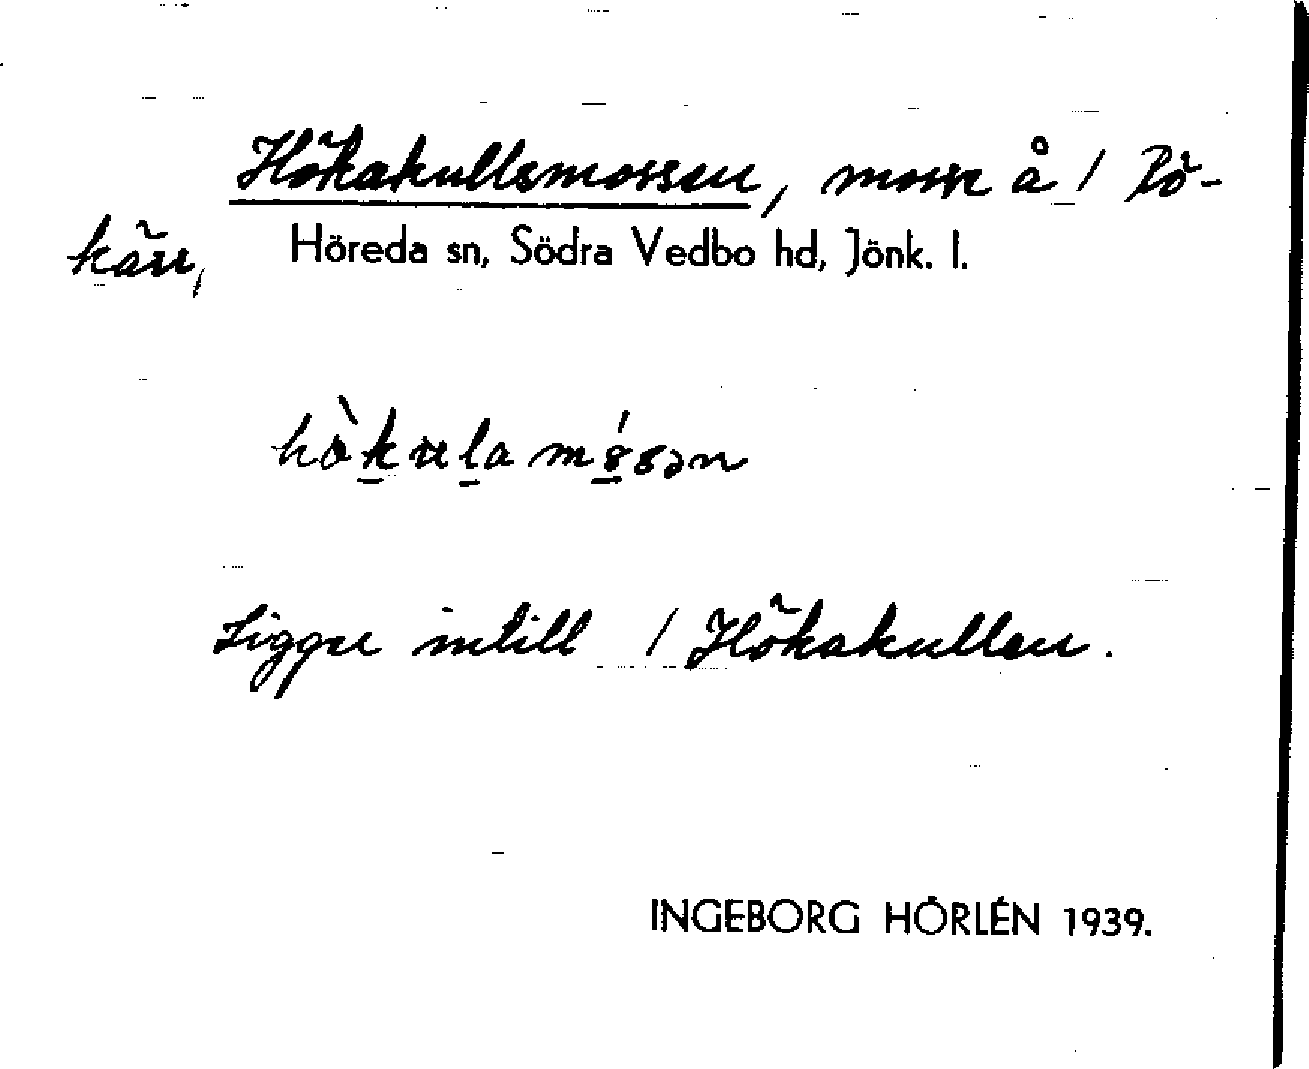 Hökakullsmossen, mosse å / Rö-
kärr,
Höreda sn, Södra Vedbo hd, Jönk. l.
Ligger intill / Hökakullen.
INGEBORG HÖRLÉN 1939.